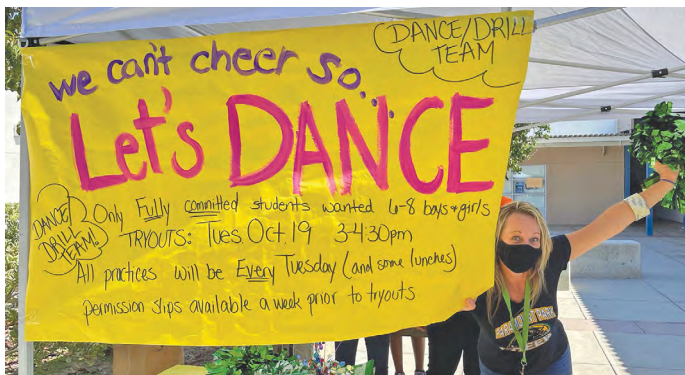 DANCE/DRILL
TEAM
we can't cheer so...
Let's DANCE
DANCE/
DRILL
TEAM!
Only Fully committed students wanted 6-8 boys + girls
TRYOUTS: Tues. Oct. 19 3-4:30pm
All practices will be Every Tuesday (and some lunches)
permission slips available a week prior to tryouts
PARK